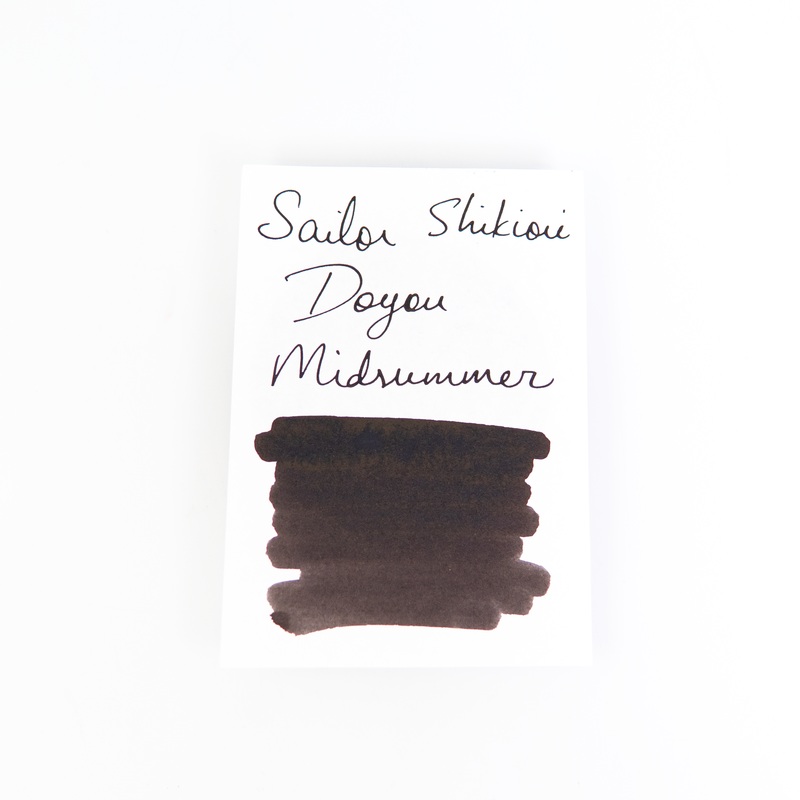 Sailor Shikiori
Doyou
Midsummer